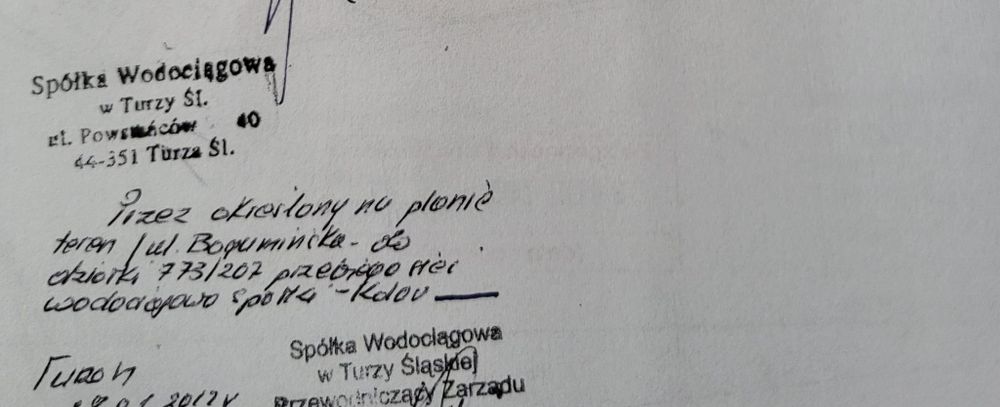 Spółka Wodociągowa
w Turzy Śl.
ul. Powstańców 40
44-351 Turza Śl.
Przez określony na planie
teren /ul. Bogumińska - do
działki 773/207 przebiega sieć
wodociągowa spółki - kolor
Spółka Wodociągowa
w Turzy Śląskiej
Przewodniczący Zarządu